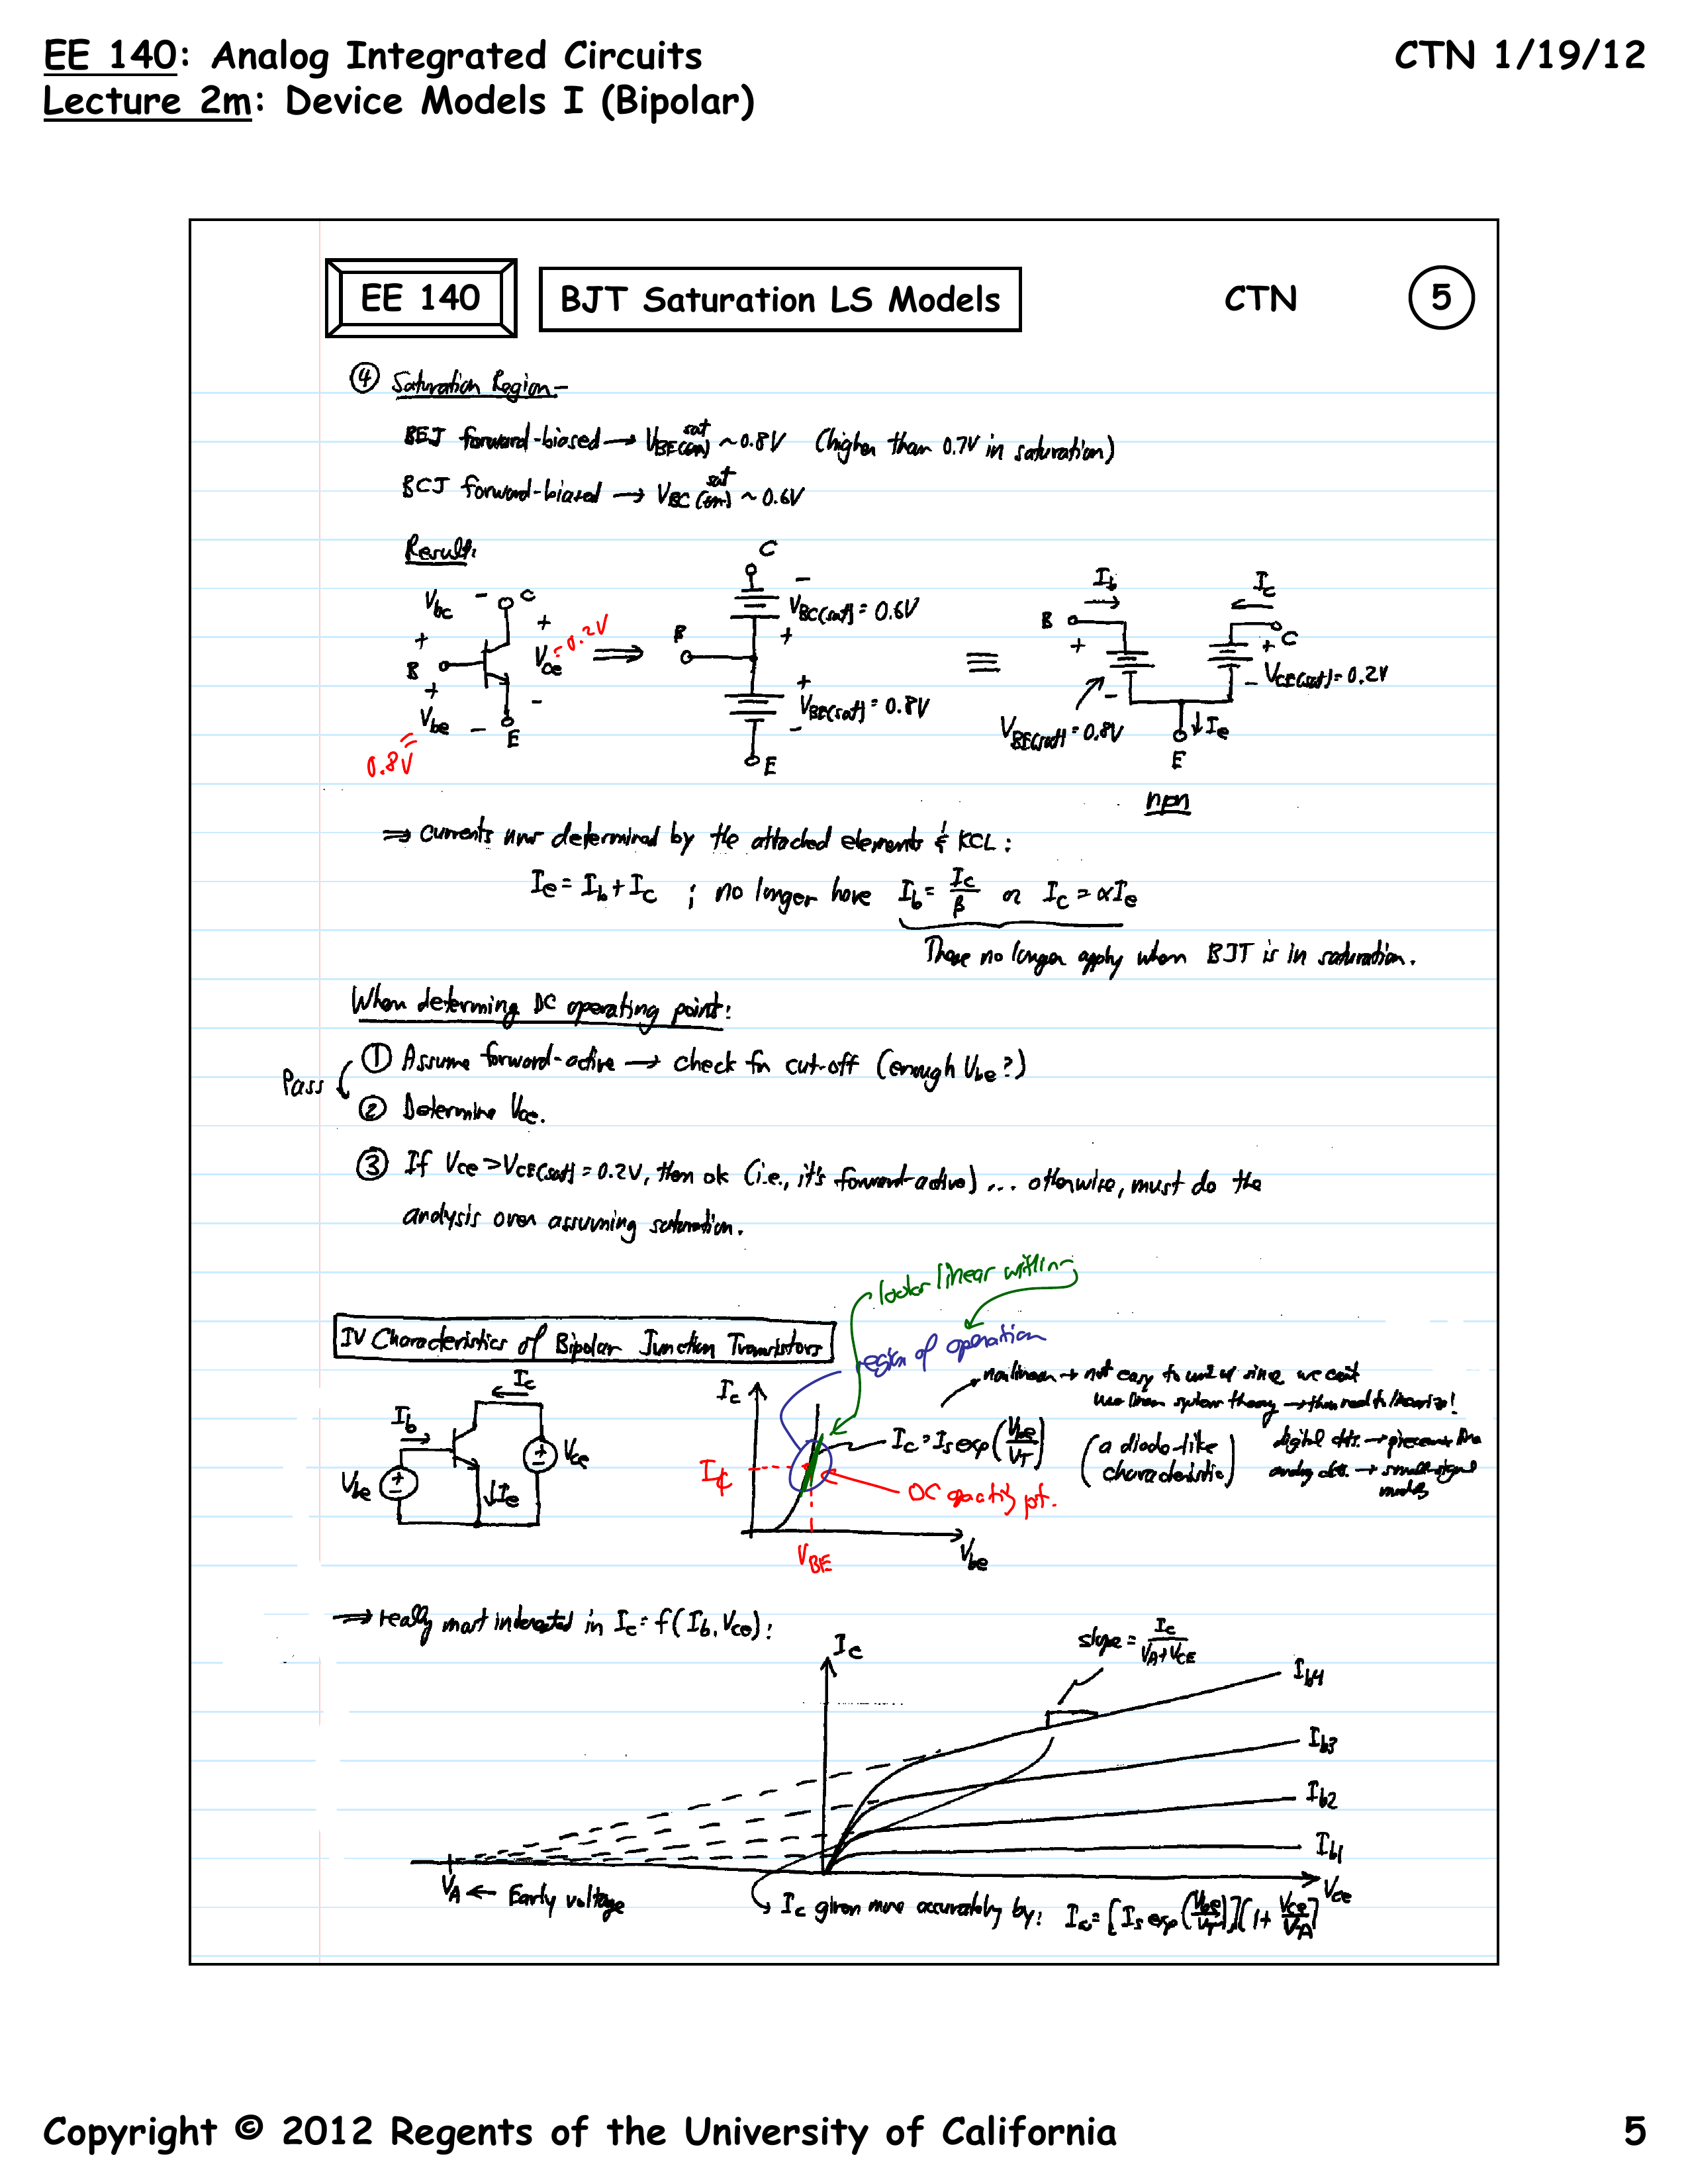 EE 140: Analog Integrated Circuits
CTN 1/19/12
Lecture 2m: Device Models I (Bipolar)
EE 140
BJT Saturation LS Models
CTN
5
④ Saturation Region –
BEJ forward-biased → VBE(on) sat ~ 0.8V (higher than 0.7V in saturation)
BCJ forward-biased → VBC(on) sat ~ 0.6V
Result:
Vbc - C + B + Vbe - E + Vce = 0.2V -
0.8V
⇒
C
- VBC(sat) = 0.6V +
B
+ VBE(sat) = 0.8V -
E
≡
Ib → Ic ←
B + C
+ VCE(sat) = 0.2V -
VBE(sat) = 0.8V -
↓ Ie
E
npn
⇒ currents now determined by the attached elements & KCL:
Ie = Ib + Ic ; no longer have Ib = Ic/β or Ic = αIe
These no longer apply when BJT is in saturation.
When determining DC operating point:
① Assume forward-active → check for cut-off (enough Vbe?)
Pass
② Determine Vce.
③ If Vce > VCE(sat) = 0.2V, then ok (i.e., it's forward-active) ... otherwise, must do the
analysis over assuming saturation.
looks linear within
region of operation
IV Characteristics of Bipolar Junction Transistors
nonlinear → not easy to work w/ since we can't
use linear system theory → thus need to linearize!
Ic
Ib
Vbe
Vce
Ie
Ic
IC
Ic = Is exp(Vbe/VT)
(a diode-like characteristic)
digital ckts. →
analog ckts. → small-signal models
DC operating pt.
VBE
Vbe
⇒ really most interested in Ic = f(Ib, Vce):
Ic
slope = Ic/(VA+VCE)
Ib4
Ib3
Ib2
Ib1
VA ← Early voltage
Vce
Ic given more accurately by: Ic = [Is exp(Vbe/VT)][1 + Vce/VA]
Copyright © 2012 Regents of the University of California
5